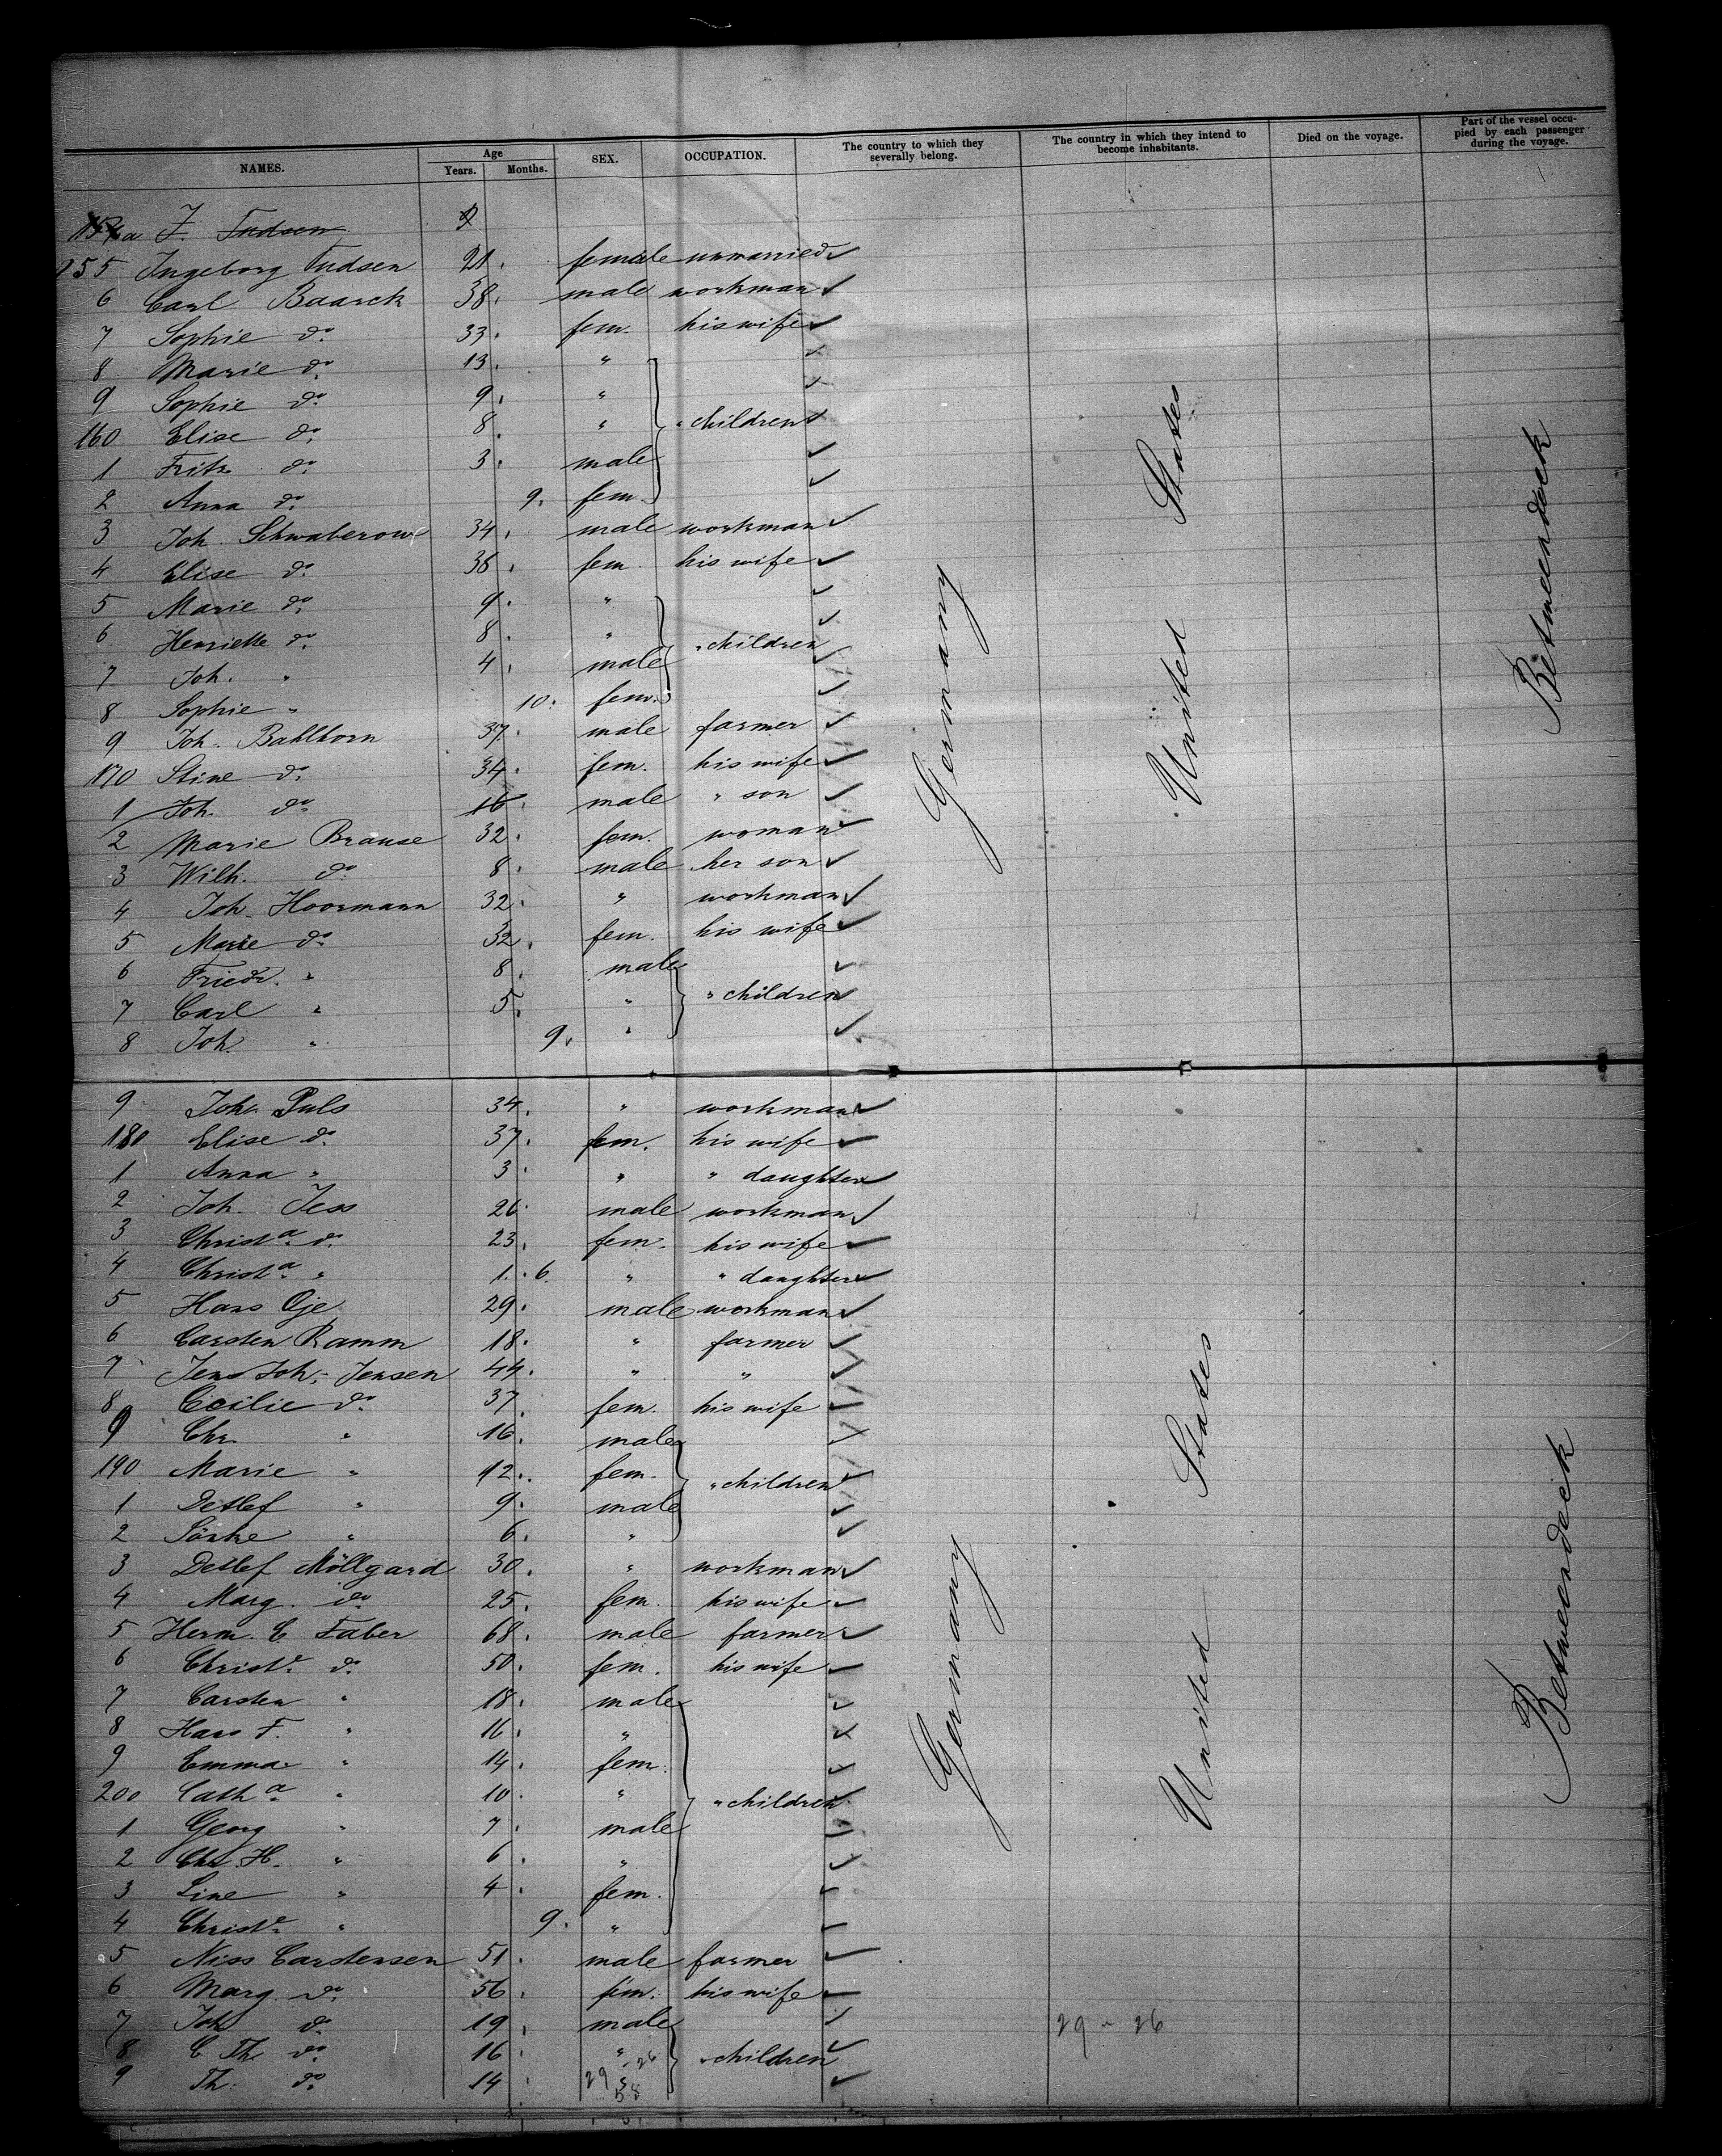 NAMES. Age Years. Months. SEX. OCCUPATION. The country to which they severally belong. The country in which they intend to become inhabitants. Died on the voyage. Part of the vessel occupied by each passenger during the voyage.
a J. Tudsen
155 Ingeborg Tudsen 21. female unmarried
6 Carl Baarck 38. male workman
7 Sophie do. 33. fem. his wife
8 Marie do. 13. "
9 Sophie do. 9. "
160 Elise do. 8. " " children
1 Fritz do. 3. male
2 Anna do. 9. fem.
3 Joh. Schwaberow 34. male workman
4 Elise do. 36. fem. his wife
5 Marie do. 9. "
6 Henriette do. 8. " " children
7 Joh. " 4. male
8 Sophie " 10. fem.
9 Joh. Bahlhorn 37. male farmer
170 Stine do. 34. fem. his wife
1 Joh. do. 16. male " son
2 Marie Brause 32. fem. woman
3 Wilh. do. 8. male her son
4 Joh. Hoormann 32. " workman
5 Marie do. 32. fem. his wife
6 Friedr. " 8. male
7 Carl " 5. " " children
8 Joh. " 9. "
Germany United States Betweendeck
9 Joh. Puls 34. " workman
180 Elise do. 37. fem. his wife
1 Anna " 3. " " daughter
2 Joh. Jess 26. male workman
3 Christa. do. 23. fem. his wife
4 Christa. " 1. 6. " " daughter
5 Hans Oje 29. male workman
6 Carsten Ramm 18. " farmer
7 Jens Joh. Jensen 44. " "
8 Cecilie do. 37. fem. his wife
9 Chr. " 16. male
190 Marie " 12. fem. " children
1 Detlef " 9. male
2 Sönke " 6. "
3 Detlef Möllgard 30. " workman
4 Marg. do. 25. fem. his wife
5 Herm. C. Faber 68. male farmer
6 Christe. do. 50. fem. his wife
7 Carsten " 18. male
8 Hans F. " 16. "
9 Emma " 14. fem.
200 Catha. " 10. " " children
1 Georg " 7. male
2 Chr. H. " 6. "
3 Line " 4. fem.
4 Christe. " 9. "
5 Niss Carstensen 51. male farmer
6 Marg. do. 56. fem. his wife
7 Joh. do. 19. male
8 C. Th. do. 16. " " children
9 Th. do. 14.
Germany United States Betweendeck
29 - 26
29 - 26